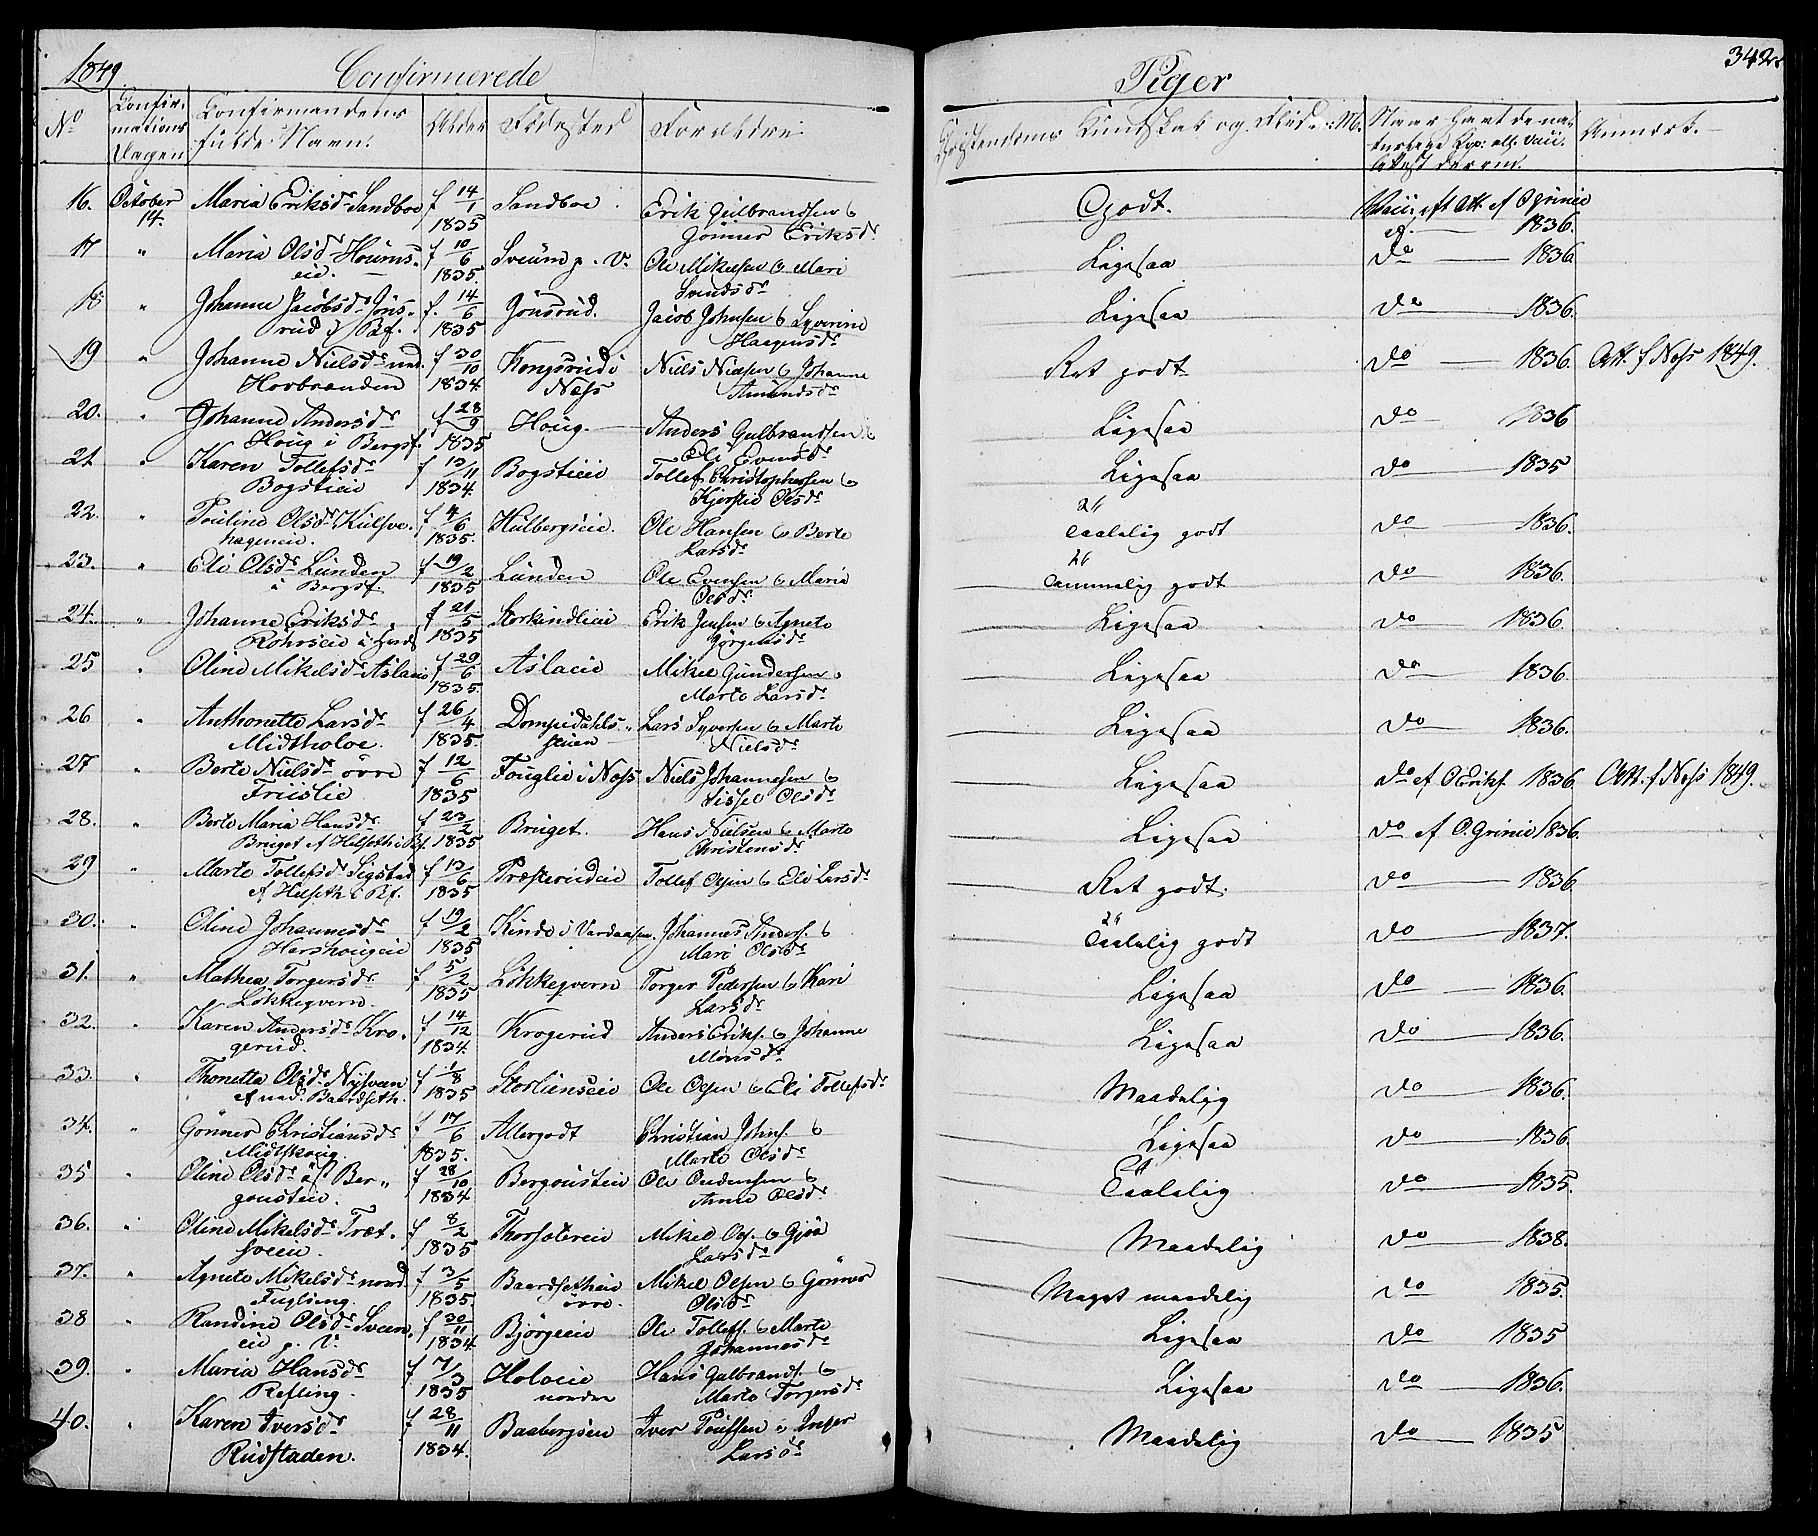 1849. Confirmerede Piger 342.
No Confirmations Dagen Confirmandens fulde Navn. Alder Födested Forældre Christendoms Kundskab og Flid Naar havt de naturlige Kop: ell. Vaii: Attest derom. Anmerk.
16. October 14. Maria Eriksdr Sandboe f 14/1 1835 Sandboe. Erik Gulbrandsen & Gönner Eriksdr Godt. Vaii: eft Att. af O Grinie 1836.
17 " Maria Olsd Houms- eie. f 10/6 1835 Sveum p. V. Ole Mikelsen & Mari Svendsdr Ligesaa do 1836
18 " Johanne Jacobsdr Jöns- rud i Bgf. f. 14/6 1835 Jönsrud. Jacob Johnsen & Syverine Haagensdr Ligesaa do 1836.
19 " Johanne Nielsdr ned. Hovbranden f 30/10 1834 Kongsrud i Næss Niels Nielsen & Johanne Amundsdr Ret godt do 1836. Att. f Næss 1849.
20. " Johanne Andersdr Houg i Bergsf. f 28/9 1835 Houg. Anders Gulbrandsen & Eli Evensdr Ligesaa do 1836
21 " Karen Tollefsdr Bogstieie f 13/11 1834. Bogstieie Tollef Christophersen & Kjerstie Olsdr Ligesaa do 1835
22. " Pouline Olsdr Kulsve- hageneie. f 4/6 1835. Hulbergseie. Ole Hansen & Berte Larsdr Taalelig godt do 1836.
23. " Eli Olsdr Lunden i Bergsf. f 19/2 1835 Lunden Ole Evensen & Maria Olsdr Temmelig godt do 1836.
24. " Johanne Eriksdr Röhrseie i Furds f 21/5 1835 Storkindlieie Erik Jensen & Agnete Jörgensdr Ligesaa do 1836.
25 " Oline Mikelsdr Aslaeie f 29/6 1835. Aslaeie Mikel Gundersen & Marte Larsdr Ligesaa do 1836.
26 " Anthonette Larsdr Midtholoe. f 26/4 1835. Dompidahls- stuen Lars Syversen & Marte Nielsdr Ligesaa do 1836.
27 " Berte Nielsdr övre Friislie f 12/6 1835 Fouglie i Næss Niels Johannesen & Sissel Olsdr Ligesaa do af O Eriks. 1836 Att. f Næss 1849.
28. " Berte Maria Hansdr Bruget af Helseth i Bf. f 23/2 1835 Bruget. Hans Nielsen & Marte Christensdr Ligesaa do af O. Grinie 1836.
29 " Marte Tollefsdr Sigstad af Helseth i Bf. f 13/6 1835 Præsterudeie Tollef Olsen & Eli Larsdr Ret godt. do 1836.
30. " Oline Johannesdr Harshougeie f 19/2 1835 Kinde i Vardaasen. Johannes Anders. & Mari Olsdr Taalelig godt do 1837.
31. " Mathea Torgersdr Lökkeqvern. f 5/2 1835 Lökkeqvern Torger Pedersen & Kari Larsdr Ligesaa do 1836.
32. " Karen Andersdr Kro- gerud. f 14/12 1834. Krogerud Anders Eriks. & Johanne Monsdr Ligesaa do 1836.
33. " Thonetta Olsdr Nysveen af ned. Baardseth. f 1/8 1835 Storlienseie Ole Olsen & Eli Tollefsdr Maadelig do 1836.
34. " Gönner Christiansdr Midtskoug. f 17/6 1835. Allergodt Christian Johns. & Marte Olsdr Ligesaa do 1836.
35 " Oline Olsdr Ber- gousteie. f 28/10 1834 Bergousteie Ole Oudensen & Anne Olsdr Taalelig do 1835.
36. " Oline Mikelsdr Træt- sveeie. f 8/2 1835 Thorsætereie Mikel Ols. & Gjöa Larsdr Maadelig do 1838.
37. " Agnete Mikelsdr nord. Fugling. f 3/5 1835. Baardsetheie övre. Mikel Olsen & Gönner Olsdr Meget maadelig do 1835.
38 " Randine Olsdr Sveen- eie p. V. f 20/11 1834 Björgeeie Ole Tollefs. & Marte Johannesdr Ligesaa do 1835
39. " Maria Hansdr Refling. f 7/3 1835 Holoeie nordre Hans Gulbrands. & Marte Torgersdr Ligesaa do 1836.
40. " Karen Iversdr Rudstaden. f 28/11 1834. Baabergseie Iver Poulsen & Inger Larsdr Maadelig do 1835